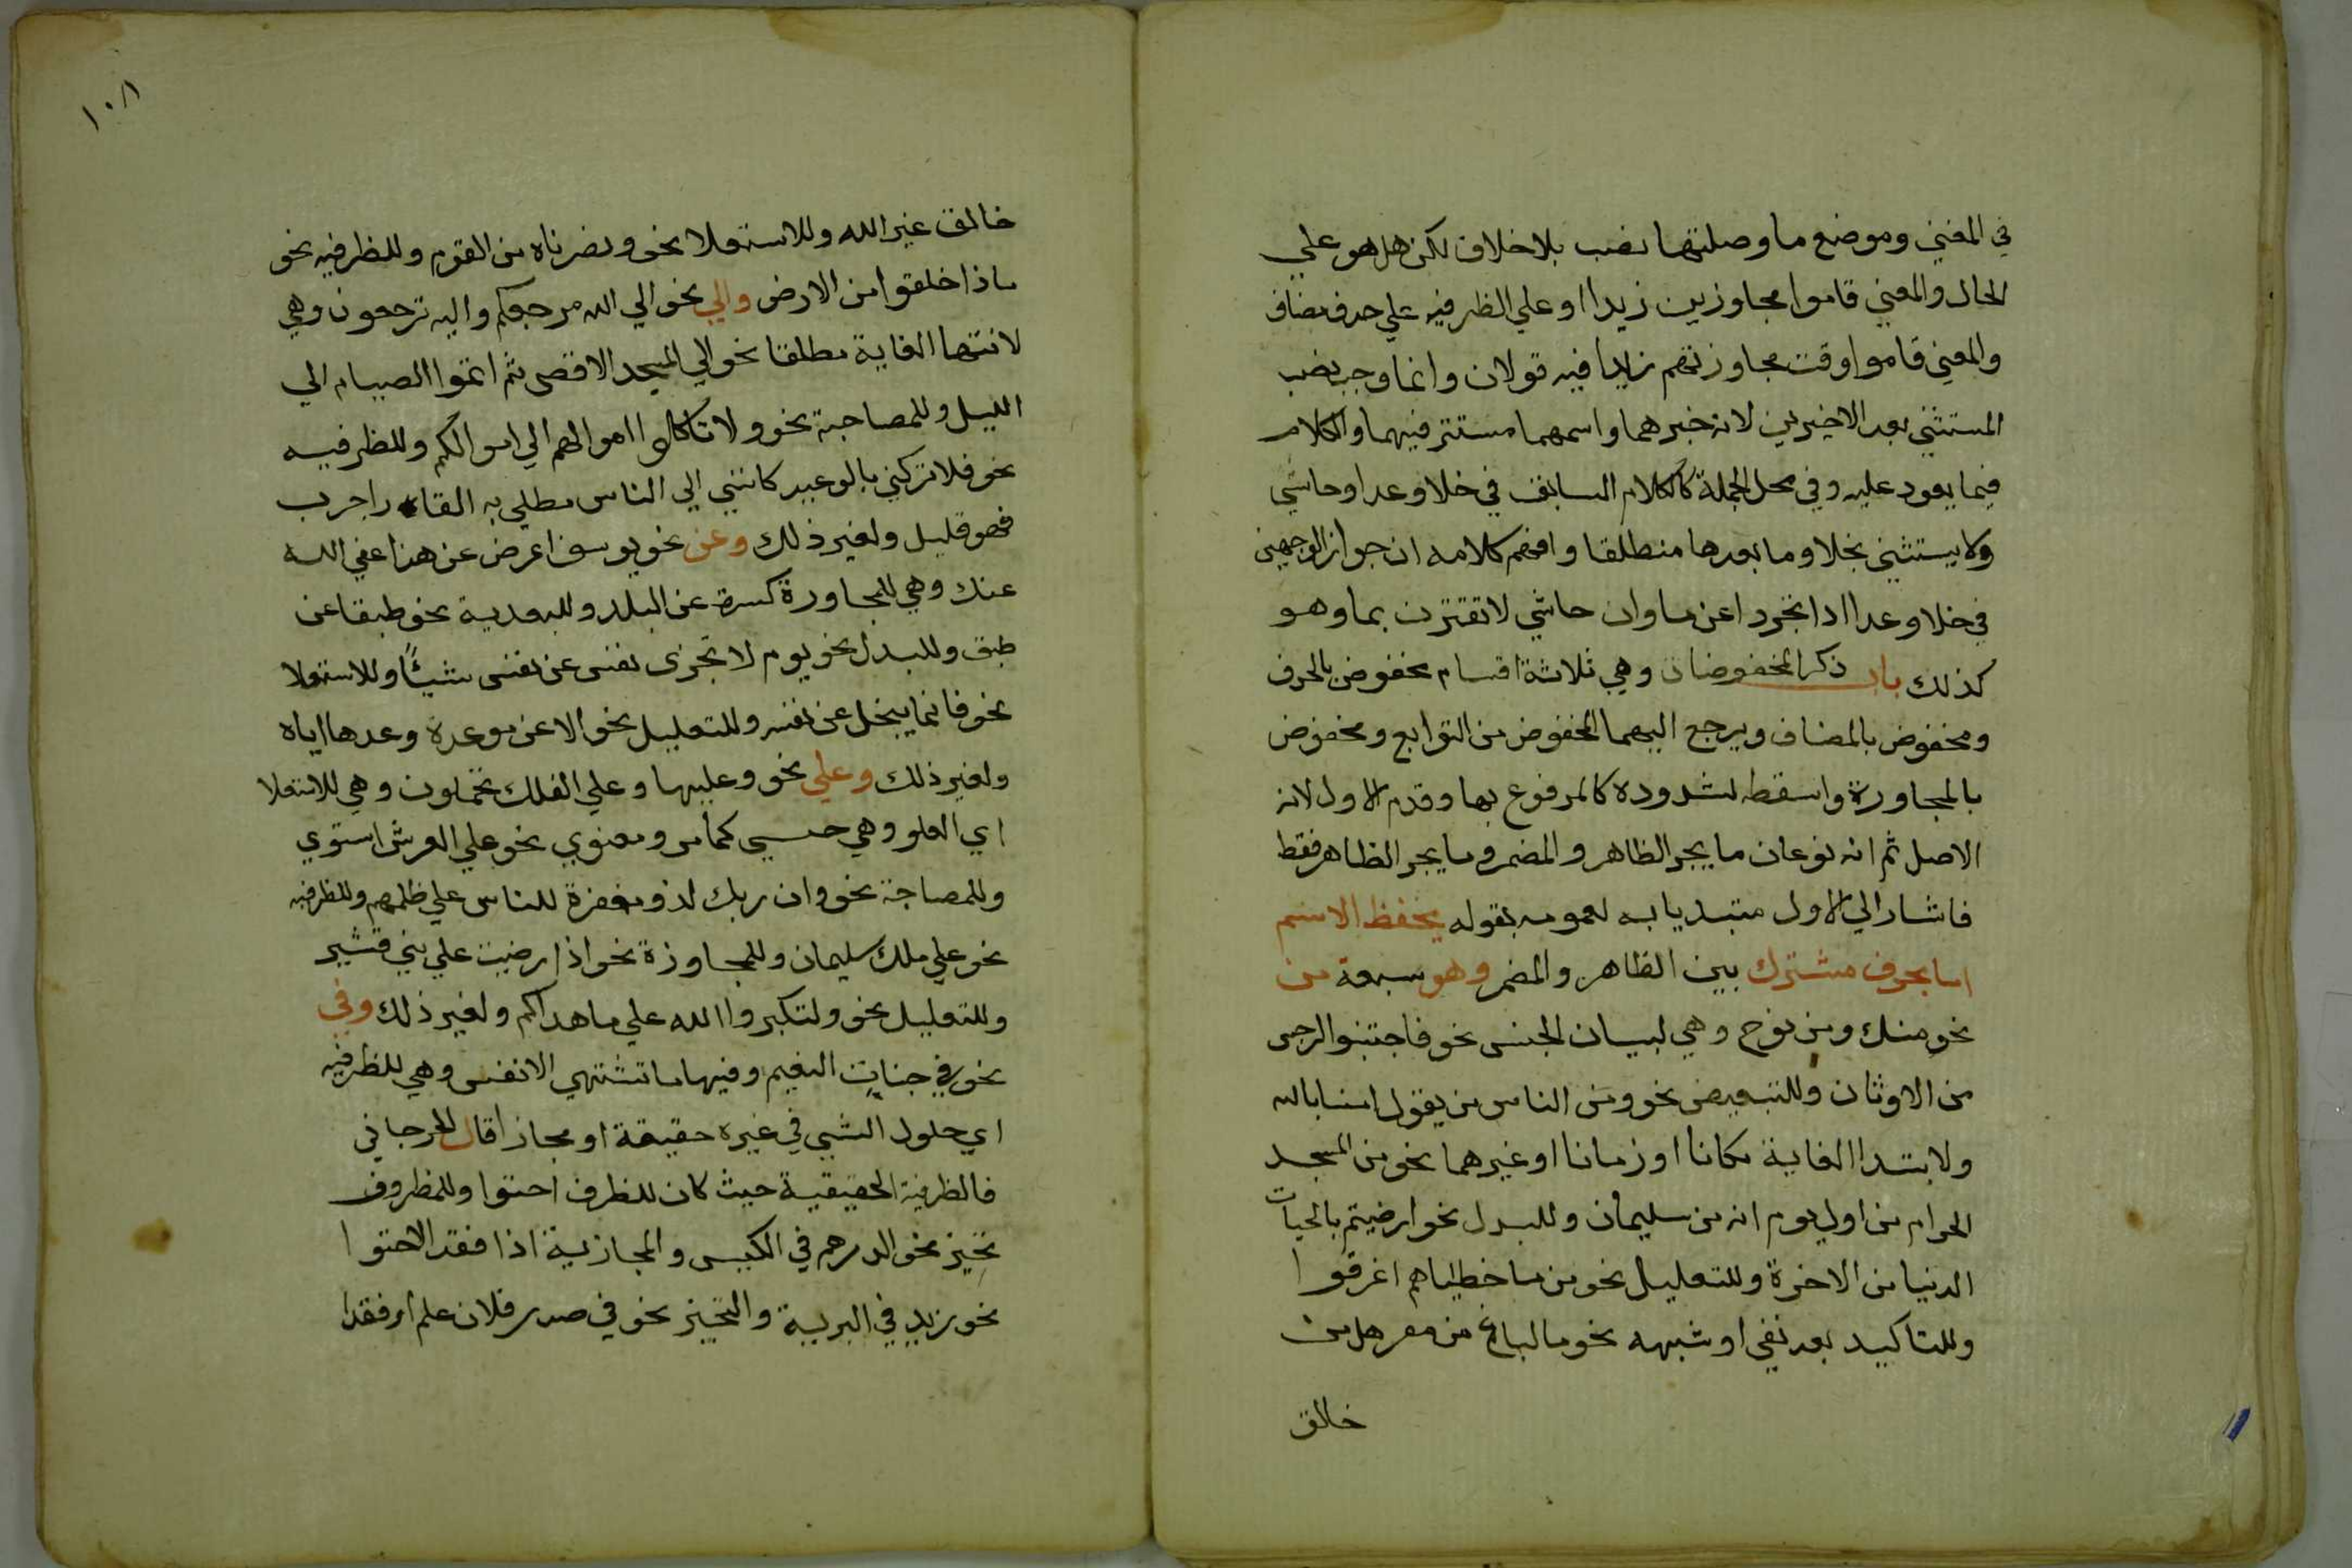 في المغني وموضع ما وصلتها نصب بلا خلاف لكن هل هو علي
الحال والمعني قاموا مجاوزين زيدا او علي الظرفيه علي حدف مضاف
والمعني قاموا وقت مجاوزتهم زيدا فيه قولان وانما وجب نصب
المستثني بعد الاخيرين لانه خبرهما واسمهما مستتر فيهما والكلام
فيما يعود عليه وفي محل الجملة كالكلام السابق في خلا وعدا وحاشي
ولا يستثني بخلا وما بعدها منطلقا وافهم كلامه ان جواز الوجهين
في خلا وعدا ادا تجردا عن ما وان حاشي لا تقترن بما وهو
كذلك باب ذكر المخفوضات وهي ثلاثة اقسام مخفوض بالحرف
ومخفوض بالمضاف ويرجع اليهما المخفوض من التوابع ومخفوض
بالمجاورة واسقطه لشدوده كالمرفوع بها وقدم الاول لانه
الاصل ثم انه نوعان ما يجر الظاهر والمضمر وما يجر الظاهر فقط
فاشار الي الاول مبتديا به لعمومه بقوله يخفظ الاسم
اما بحرف مشترك بين الظاهر والمضمر وهو سبعة من
نحو منك ومن نوح وهي لبيان الجنس نحو فاجتنبوا الرجس
من الاوثان وللتبعيض نحو ومن الناس من يقول امنا بالله
ولابتدا الغاية مكانا او زمانا او غيرهما نحو من المسجد
الحرام من اول يوم انه من سليمان وللبدل نحو ارضيتم بالحيات
الدنيا من الاخرة وللتعليل نحو من ما خطياهم اغرقوا
وللتاكيد بعد نفي او شبهه نحو ما لباغ من مفر هل من
خالق
١٠٨
خالق غير الله وللاستعلا نحو ونصرناه من القوم وللظرفيه نحو
ماذا خلقوا من الارض والي نحو الي الله مرجعكم واليه ترجعون وهي
لانتها الغاية مطلقا نحو الي المسجد الاقصى ثم اتموا الصيام الي
الليل وللمصاحبة نحو ولا تاكلوا اموالهم الي اموالكم وللظرفيه
نحو فلا تركني بالوعيد كانني الي الناس مطلي به القار اجرب
فهو قليل ولغير ذلك وعن نحو يوسف اعرض عن هذا عفي الله
عنك وهي للمجاورة كسرت عن البلد وللبعدية نحو طبقا عن
طبق وللبدل نحو يوم لا تجزى نفس عن نفس شيئًا وللاستعلا
نحو فانما يبخل عن نفسه وللتعليل نحو الا عن موعدة وعدها اياه
ولغير ذلك وعلي نحو وعليها وعلي الفلك تحملون وهي للاستعلا
اي العلو وهي حسي كما مر ومعنوي نحو علي العرش استوي
وللمصاحبة نحو وان ربك لذو مغفرة للناس علي ظلمهم وللظرفيه
نحو علي ملك سليمان وللمجاوزة نحو اذا رضيت علي بني قشير
وللتعليل نحو ولتكبروا الله علي ما هداكم ولغير ذلك وفي
نحو في جنات النعيم وفيها ما تشتهي الانفس وهي للظرفيه
اي حلول الشيي في غيره حقيقة او مجازا قال الجرجاني
فالظرفية الحقيقية حيث كان للظرف احتوا وللمظروف
تحيز نحو الدرهم في الكيس والمجازية اذا فقد الاحتوا
نحو زيد في البرية والتحيز نحو في صدر فلان علم او فقدا